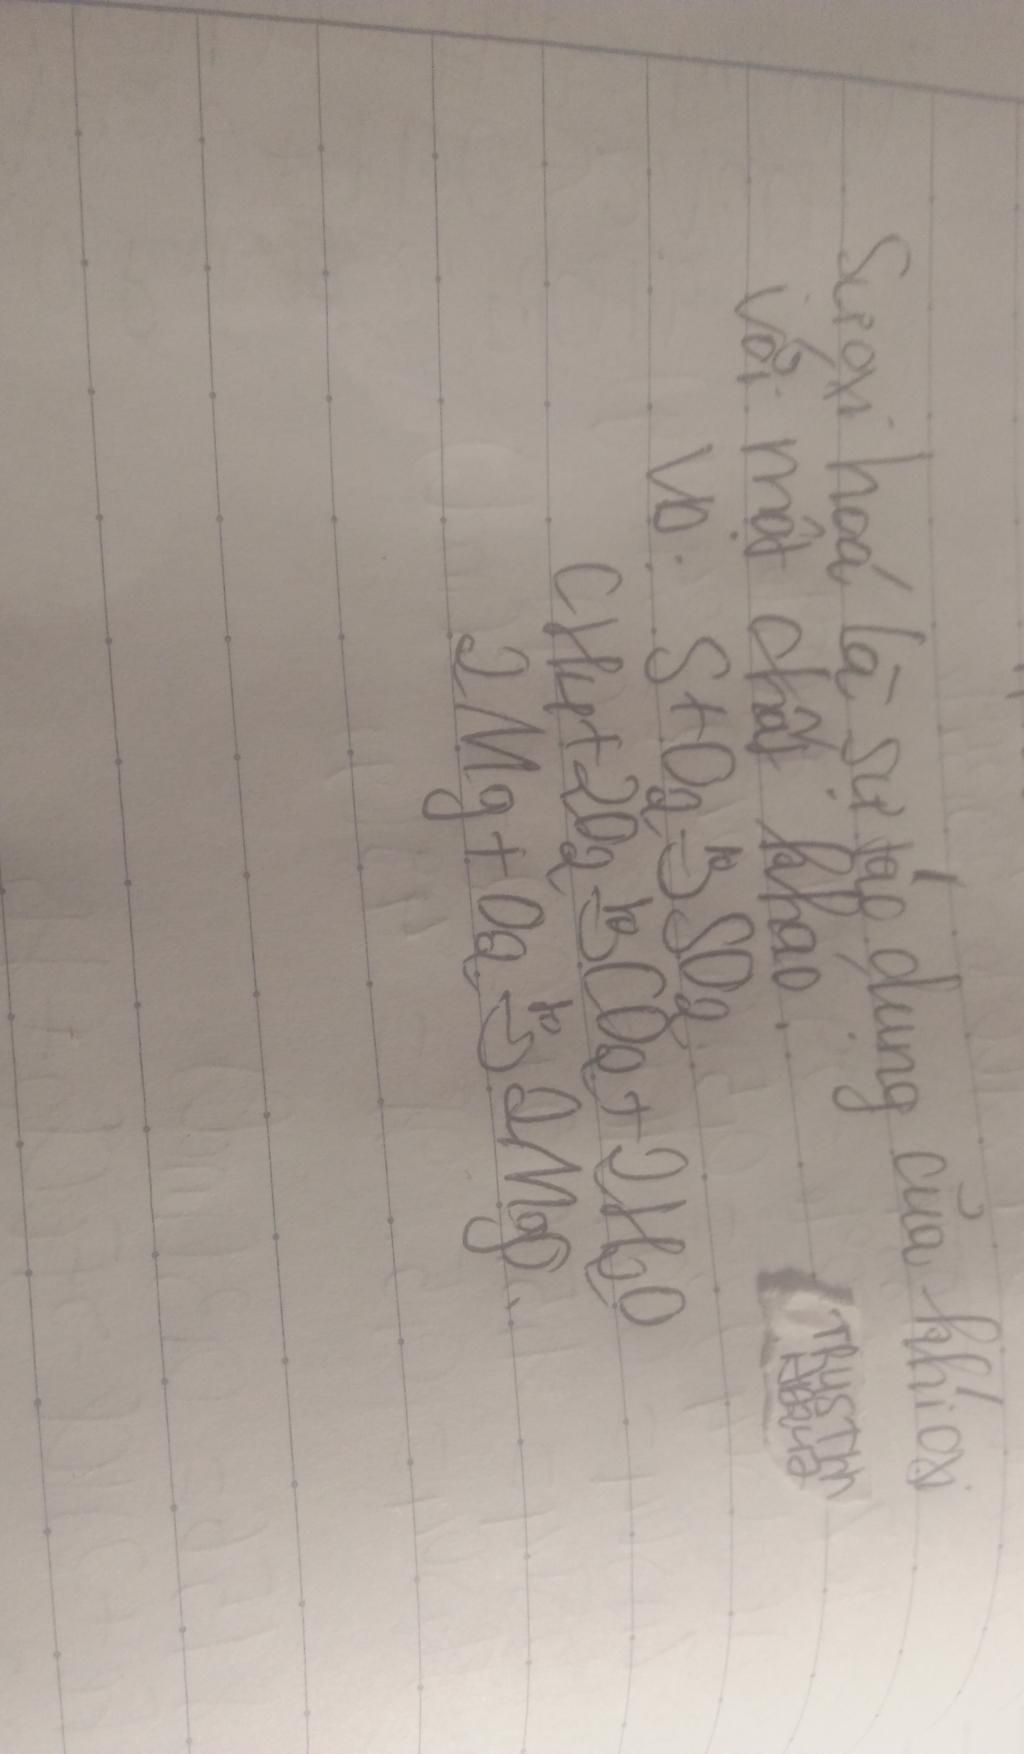 Sự oxi hoá là sự tác dụng của khí oxi
với một chất khác
VD: S + O₂ →tº SO₂
CH₄ + 2O₂ →tº CO₂ + 2H₂O
2Mg + O₂ →tº 2MgO.